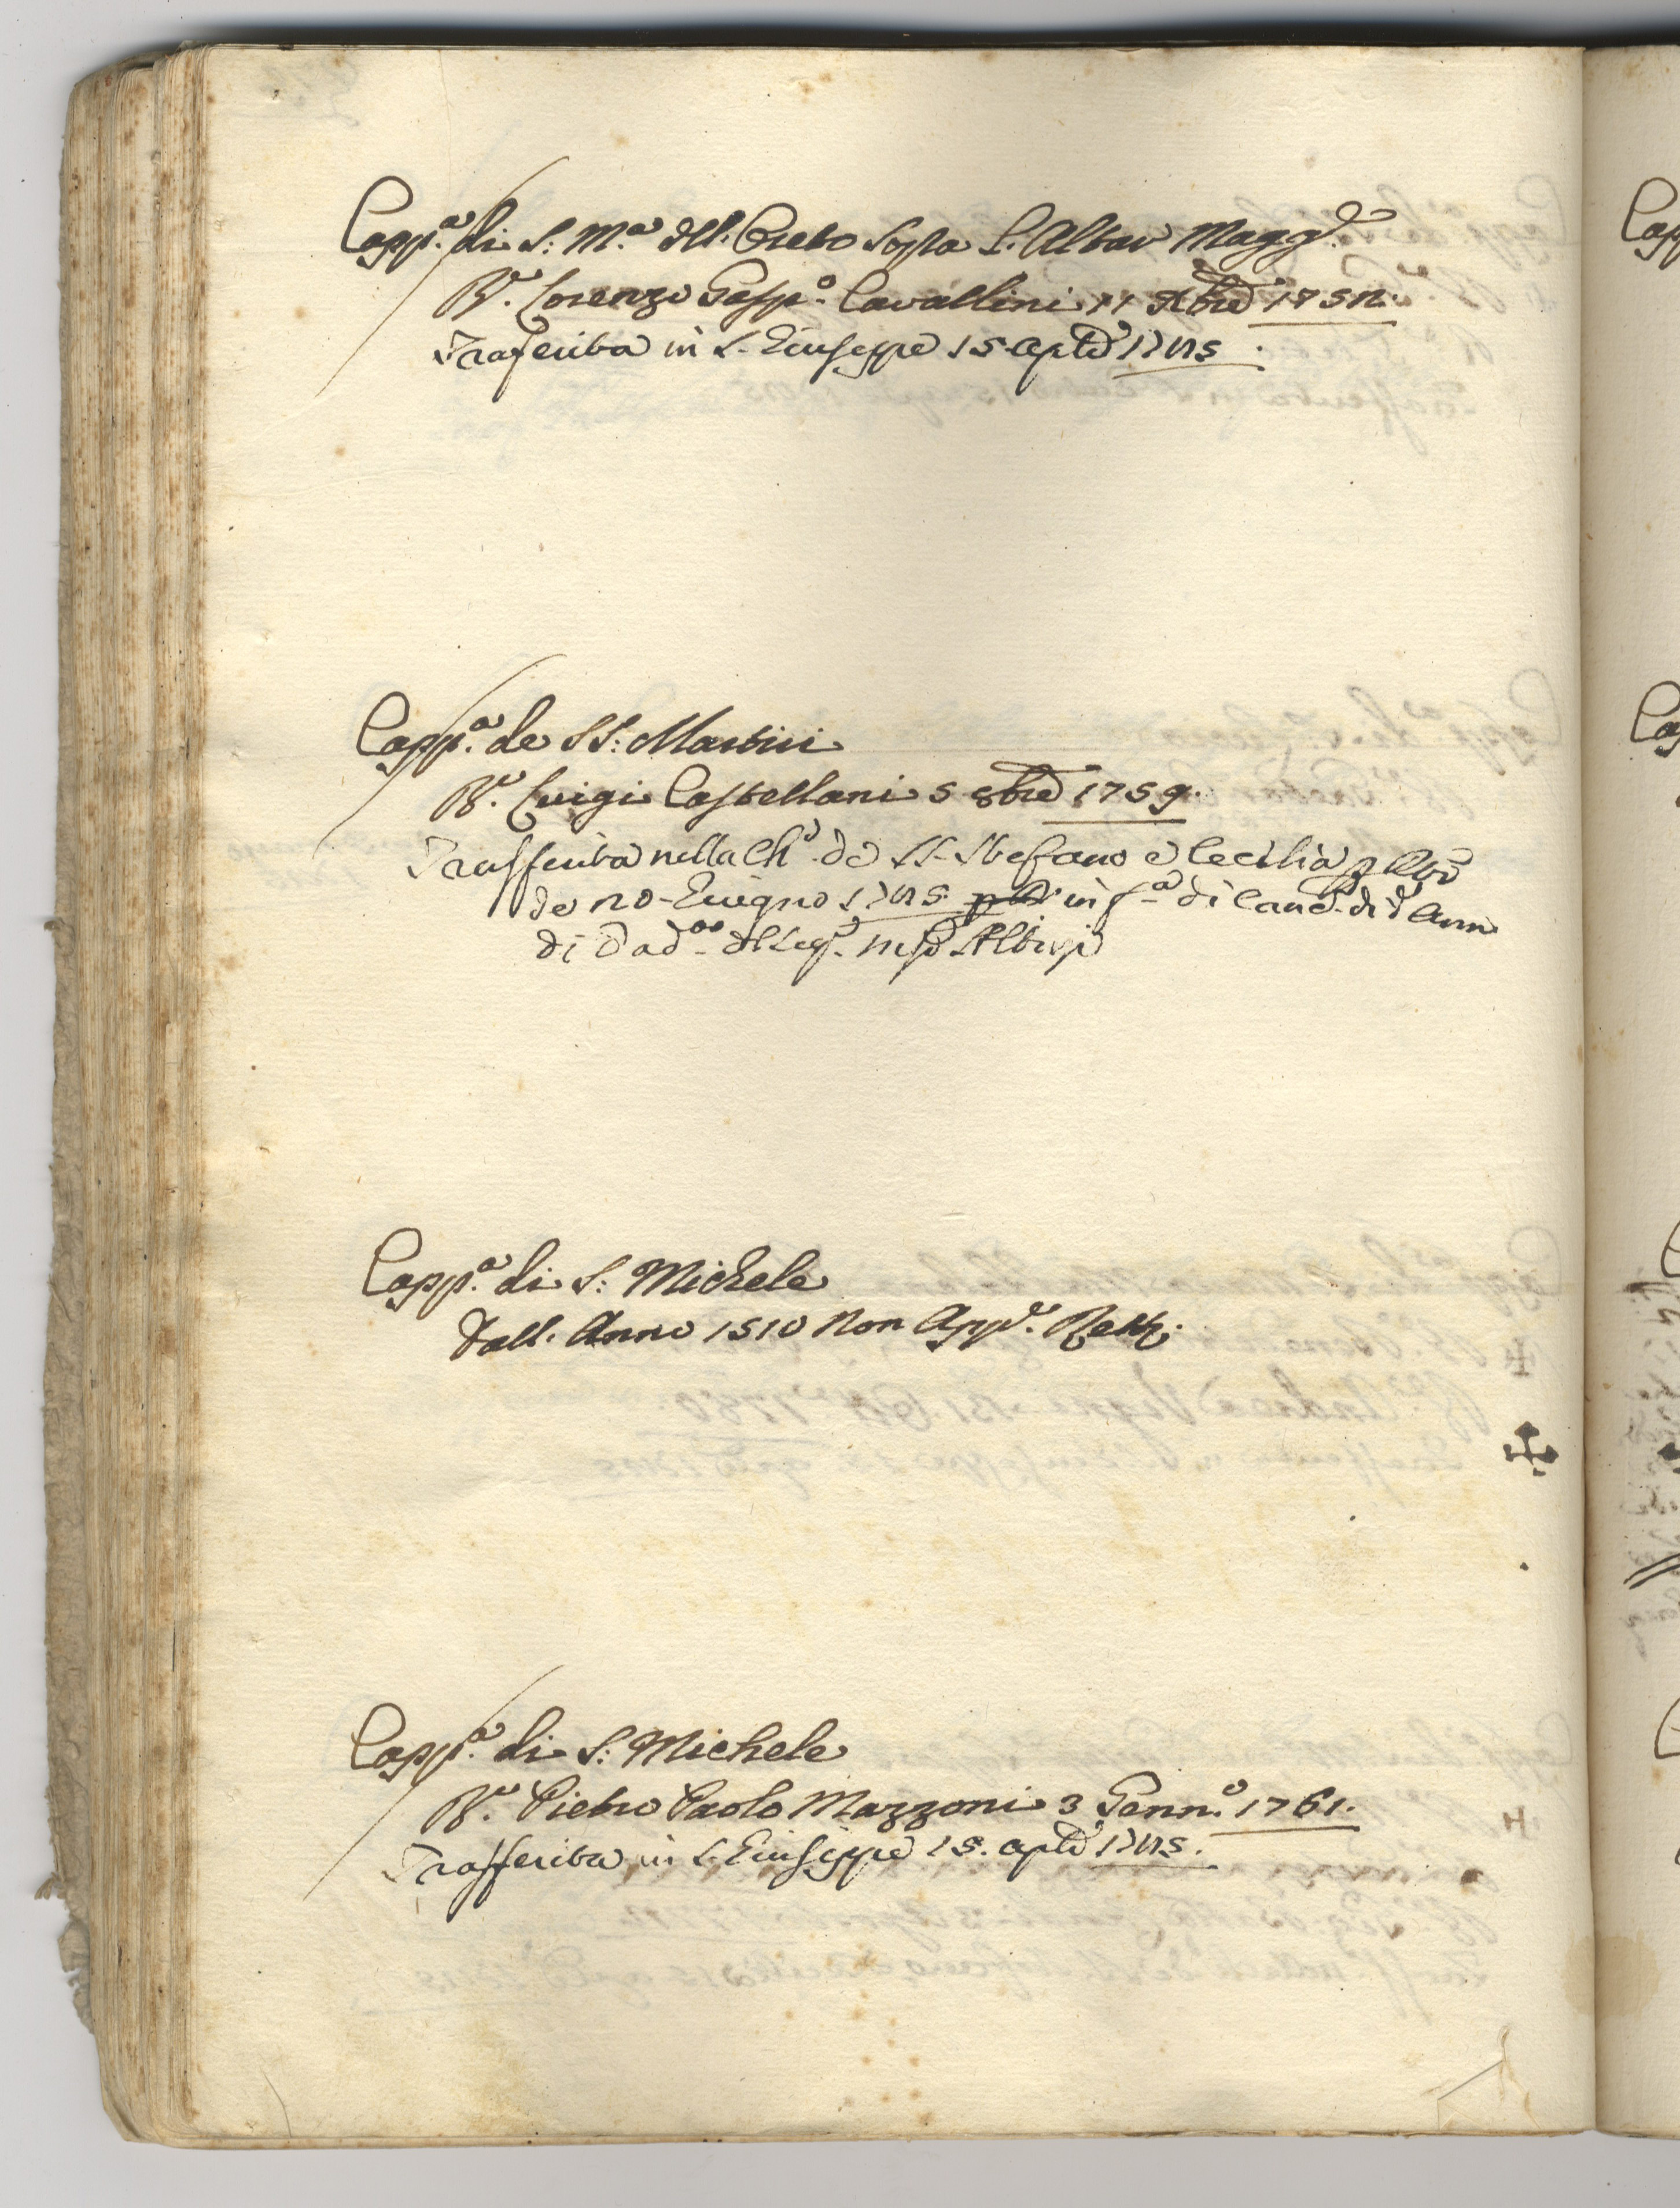 Capp.ª di S: M.ª dell. Creto Sopra L. Altar Magg.e
R.e Lorenzo Gasp.o Cavallini 11 Xbre 1752.
Trasferita in S. Giuseppe 15 aple 1785.
Capp.ª de SS: Martiri
R.e Luigi Castellani 5 8bre 1759.
Trasferita nella Ch.ª de SS. Stefano e Cecilia
de 20 Giugno 1785 in f.ª di di d.º Anno
di
Capp.ª di S: Michele
Dall. Anno 1510 Non App.e Rett.
Capp.ª di S: Michele
R.e Pietro Paolo Mazzoni 3 Genn.o 1761.
Trasferita in S. Giuseppe 15. aple 1785.